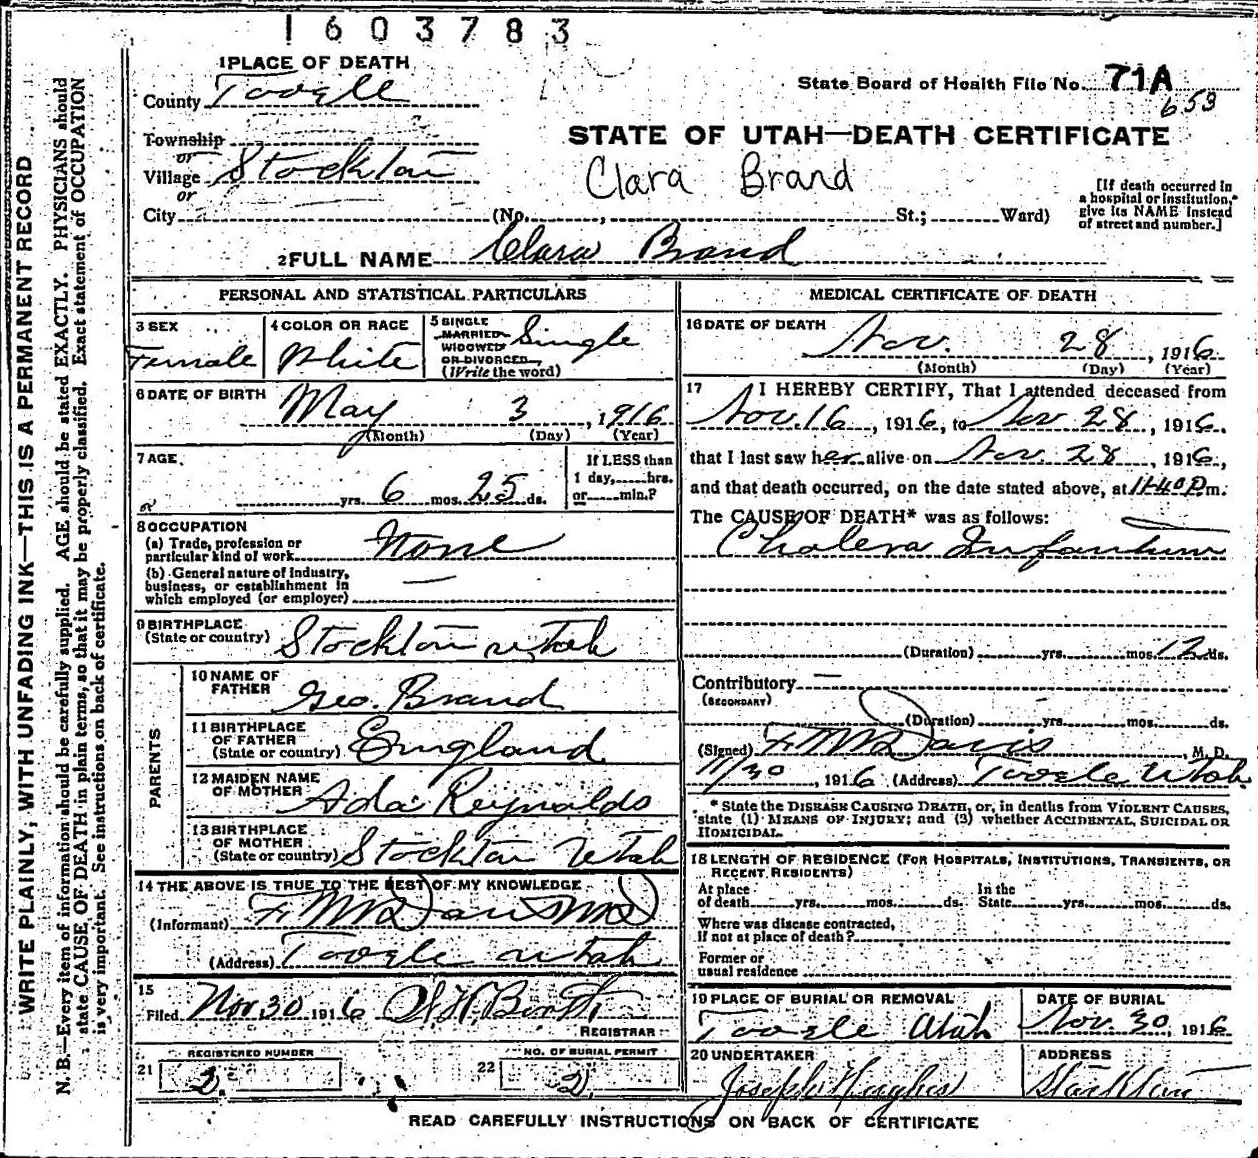 1603783
1 PLACE OF DEATH
State Board of Health File No. 71A
653
County Tooele
STATE OF UTAH—DEATH CERTIFICATE
Township
or
Village Stockton
Clara Brand
or
City (No. , St.; Ward)
[If death occurred in
a hospital or institution,
give its NAME instead
of street and number.]
2 FULL NAME Clara Brand
PERSONAL AND STATISTICAL PARTICULARS
3 SEX
Female
4 COLOR OR RACE
White
5 SINGLE
MARRIED
WIDOWED
OR DIVORCED
(Write the word)
Single
6 DATE OF BIRTH
May 3, 1916
(Month) (Day) (Year)
7 AGE
If LESS than
1 day, hrs.
or min.?
or yrs. 6 mos. 25 ds.
8 OCCUPATION
(a) Trade, profession or
particular kind of work None
(b) General nature of industry,
business, or establishment in
which employed (or employer) —
9 BIRTHPLACE
(State or country) Stockton Utah
PARENTS
10 NAME OF
FATHER Geo. Brand
11 BIRTHPLACE
OF FATHER
(State or country) England
12 MAIDEN NAME
OF MOTHER Ada Reynolds
13 BIRTHPLACE
OF MOTHER
(State or country) Stockton Utah
14 THE ABOVE IS TRUE TO THE BEST OF MY KNOWLEDGE
(Informant) F M Davis MD
(Address) Tooele Utah
15
Filed Nov. 30 1916
REGISTRAR
REGISTERED NUMBER
21 2
NO. OF BURIAL PERMIT
22 2
MEDICAL CERTIFICATE OF DEATH
16 DATE OF DEATH
Nov. 28, 1916
(Month) (Day) (Year)
17 I HEREBY CERTIFY, That I attended deceased from
Nov. 16, 1916, to Nov 28, 1916.
that I last saw her alive on Nov. 28, 1916,
and that death occurred, on the date stated above, at 11:40 P.m.
The CAUSE OF DEATH* was as follows:
Cholera Infantum
(Duration) yrs. mos. 12 ds.
Contributory —
(SECONDARY)
(Duration) yrs. mos. ds.
(Signed) F M Davis, M. D.
11/30, 1916 (Address) Tooele Utah
* State the DISEASE CAUSING DEATH, or, in deaths from VIOLENT CAUSES,
state (1) MEANS OF INJURY; and (2) whether ACCIDENTAL, SUICIDAL OR
HOMICIDAL.
18 LENGTH OF RESIDENCE (FOR HOSPITALS, INSTITUTIONS, TRANSIENTS, OR
RECENT RESIDENTS)
At place
of death yrs. mos. ds.
In the
State yrs. mos. ds.
Where was disease contracted,
if not at place of death?
Former or
usual residence
19 PLACE OF BURIAL OR REMOVAL
Tooele Utah
DATE OF BURIAL
Nov. 30, 1916
20 UNDERTAKER
Joseph Hughes
ADDRESS
Stockton
READ CAREFULLY INSTRUCTIONS ON BACK OF CERTIFICATE
WRITE PLAINLY, WITH UNFADING INK—THIS IS A PERMANENT RECORD
N. B.—Every item of information should be carefully supplied. AGE should be stated EXACTLY. PHYSICIANS should
state CAUSE OF DEATH in plain terms, so that it may be properly classified. Exact statement of OCCUPATION
is very important. See instructions on back of certificate.